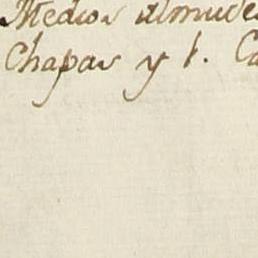 Medios Almudes
Chapas y 1. Ca